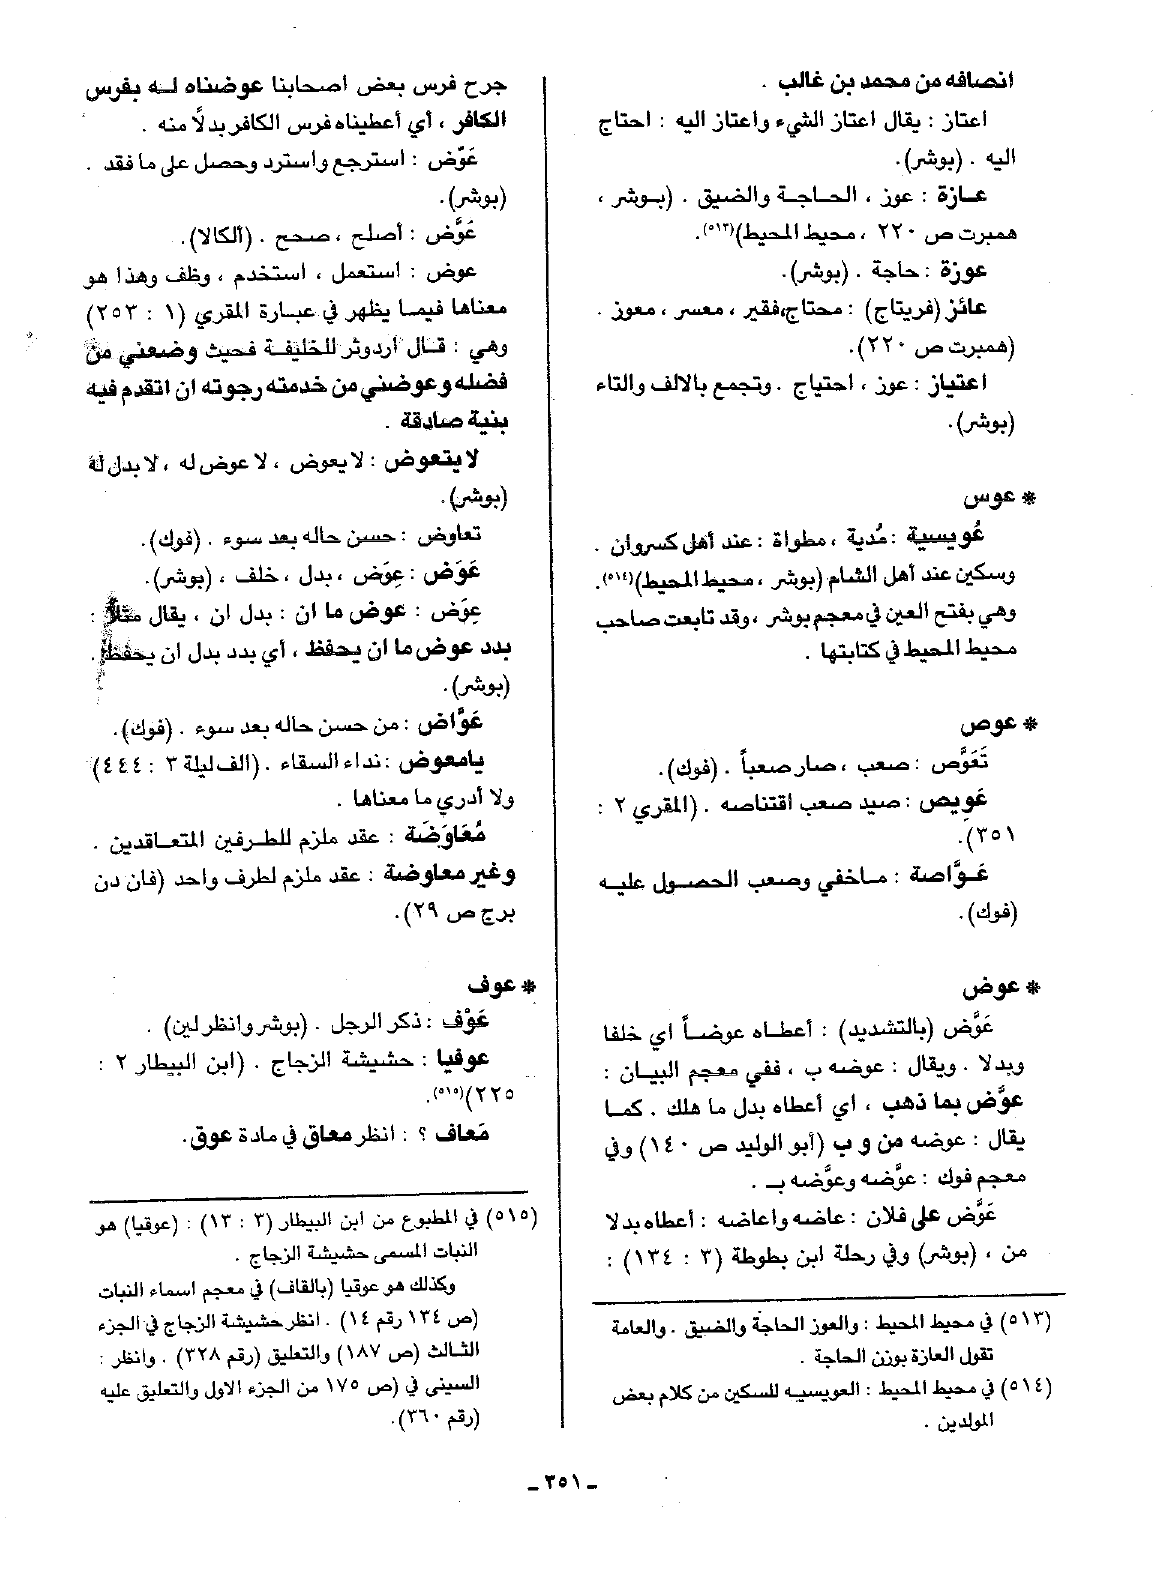 انصافه من محمد بن غالب .
اعتاز : يقال اعتاز الشيء واعتاز اليه : احتاج
اليه . (بوشر).
عازة : عوز ، الحاجة والضيق . (بوشر ،
همبرت ص ٢٢٠ ، محيط المحيط)(٥١٣).
عوزة : حاجة . (بوشر).
عائز (فريتاج) : محتاج، فقير ، معسر ، معوز .
(همبرت ص ٢٢٠).
اعتياز : عوز ، احتياج . وتجمع بالالف والتاء
(بوشر).
* عوس
عُويسية : مُدية ، مطواة : عند أهل كسروان .
وسكين عند أهل الشام (بوشر ، محيط المحيط)(٥١٤).
وهي بفتح العين في معجم بوشر ، وقد تابعت صاحب
محيط المحيط في كتابتها .
* عوص
تَعَوَّص : صعب ، صار صعباً . (فوك).
عَويص : صيد صعب اقتناصه . (المقري ٢ :
٣٥١).
عَوَّاصة : ماخفي وصعب الحصول عليه
(فوك).
* عوض
عَوَّض (بالتشديد) : أعطاه عوضاً أي خلفا
وبدلا . ويقال : عوضه ب ، ففي معجم البيان :
عوَّض بما ذهب ، اي أعطاه بدل ما هلك . كما
يقال : عوضه من و ب (أبو الوليد ص ١٤٠) وفي
معجم فوك : عوَّضه وعوَّضه بـ .
عَوَّض على فلان : عاضه واعاضه : أعطاه بدلا
من ، (بوشر) وفي رحلة ابن بطوطة (٣ : ١٣٤) :
(٥١٣) في محيط المحيط : والعوز الحاجة والضيق . والعامة
تقول العازة بوزن الحاجة .
(٥١٤) في محيط المحيط : العويسيه للسكين من كلام بعض
المولدين .
جرح فرس بعض اصحابنا عوضناه له بفرس
الكافر ، أي أعطيناه فرس الكافر بدلاً منه .
عَوَّض : استرجع واسترد وحصل على ما فقد .
(بوشر).
عَوَّض : أصلح ، صحح . (ألكالا).
عوض : استعمل ، استخدم ، وظف وهذا هو
معناها فيما يظهر في عبارة المقري (١ : ٢٥٣)
وهي : قال أردوثر للخليفة فحيث وضعني من
فضله وعوضني من خدمته رجوته ان اتقدم فيه
بنية صادقة .
لا يتعوض : لا يعوض ، لا عوض له ، لا بدل له
(بوشر).
تعاوض : حسن حاله بعد سوء . (فوك).
عَوَض : عِوَض ، بدل ، خلف ، (بوشر).
عِوَض : عوض ما ان : بدل ان ، يقال مثلاً :
بدد عوض ما ان يحفظ ، أي بدد بدل ان يحفظ .
(بوشر).
عَوَّاض : من حسن حاله بعد سوء . (فوك).
يامعوض : نداء السقاء . (الف ليلة ٣ : ٤٤٤)
ولا أدري ما معناها .
مُعَاوَضَة : عقد ملزم للطرفين المتعاقدين .
وغير معاوضة : عقد ملزم لطرف واحد (فان دن
برج ص ٢٩).
* عوف
عَوْف : ذكر الرجل . (بوشر وانظر لين) .
عوفيا : حشيشة الزجاج . (ابن البيطار ٢ :
٢٢٥)(٥١٥).
مَعاف ؟ : انظر معاق في مادة عوق.
(٥١٥) في المطبوع من ابن البيطار (٣ : ١٣) : (عوقيا) هو
النبات المسمى حشيشة الزجاج .
وكذلك هو عوقيا (بالقاف) في معجم اسماء النبات
(ص ١٣٤ رقم ١٤) . انظر حشيشة الزجاج في الجزء
الثالث (ص ١٨٧) والتعليق (رقم ٣٢٨) . وانظر :
السينى في (ص ١٧٥ من الجزء الاول والتعليق عليه
(رقم ٣٦٠).
ـ ٣٥١ ـ